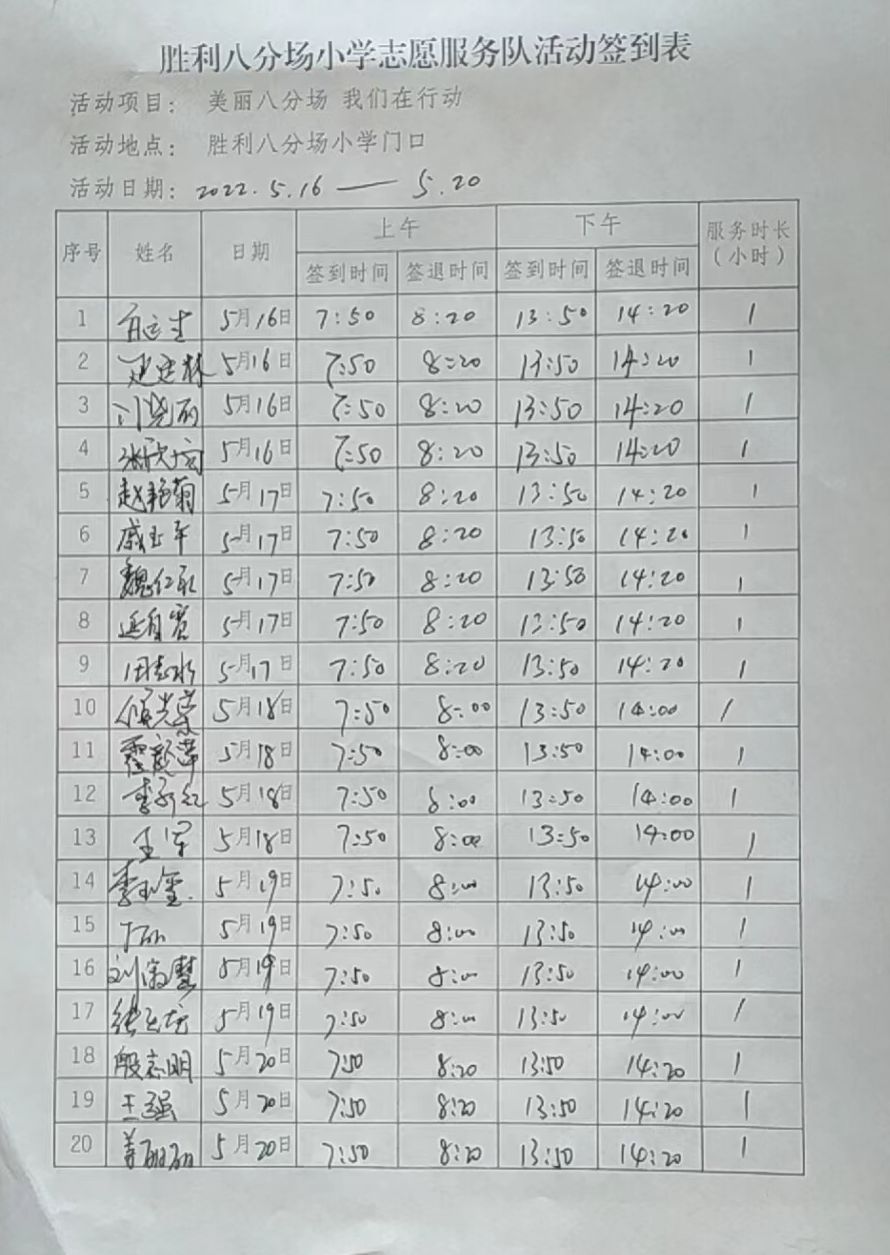 胜利八分场小学志愿服务队活动签到表
活动项目： 美丽八分场 我们在行动
活动地点： 胜利八分场小学门口
活动日期：2022.5.16 —— 5.20
序号 姓名 日期 上午 下午 服务时长（小时）
签到时间 签退时间 签到时间 签退时间
1 5月16日 7:50 8:20 13:50 14:20 1
2 5月16日 7:50 8:20 13:50 14:20 1
3 5月16日 7:50 8:20 13:50 14:20 1
4 5月16日 7:50 8:20 13:50 14:20 1
5 赵艳菊 5月17日 7:50 8:20 13:50 14:20 1
6 5月17日 7:50 8:20 13:50 14:20 1
7 魏仁永 5月17日 7:50 8:20 13:50 14:20 1
8 5月17日 7:50 8:20 13:50 14:20 1
9 田志水 5月17日 7:50 8:20 13:50 14:20 1
10 5月18日 7:50 8:00 13:50 14:00 1
11 5月18日 7:50 8:00 13:50 14:00 1
12 5月18日 7:50 8:00 13:50 14:00 1
13 王军 5月18日 7:50 8:00 13:50 14:00 1
14 5月19日 7:50 8:00 13:50 14:00 1
15 5月19日 7:50 8:00 13:50 14:00 1
16 5月19日 7:50 8:00 13:50 14:00 1
17 5月19日 7:50 8:00 13:50 14:00 1
18 殷志明 5月20日 7:50 8:20 13:50 14:20 1
19 王强 5月20日 7:50 8:20 13:50 14:20 1
20 姜丽丽 5月20日 7:50 8:20 13:50 14:20 1